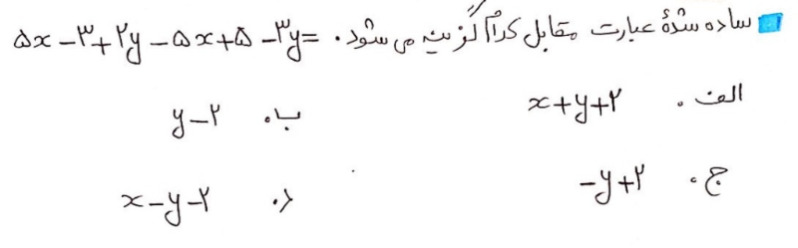 ساده شدهٔ عبارت مقابل کدام گزینه می شود. =۵x −۳+۲y −۵x+۵ −۳y
الف. x+y+۲
ب. y−۲
ج. −y+۲
د. x−y−۲